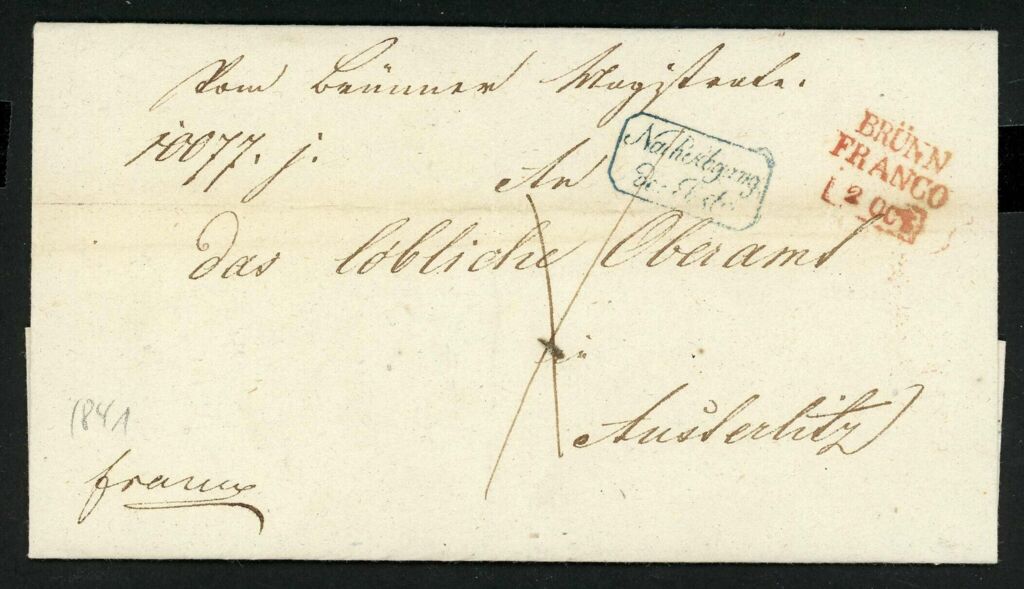 Vom Brünner Magistrate.
10077. j.
An
Nach Abgang
der Post
BRÜNN
FRANCO
2 OCT
das löbliche Oberamt
in
Austerlitz
1841
franco